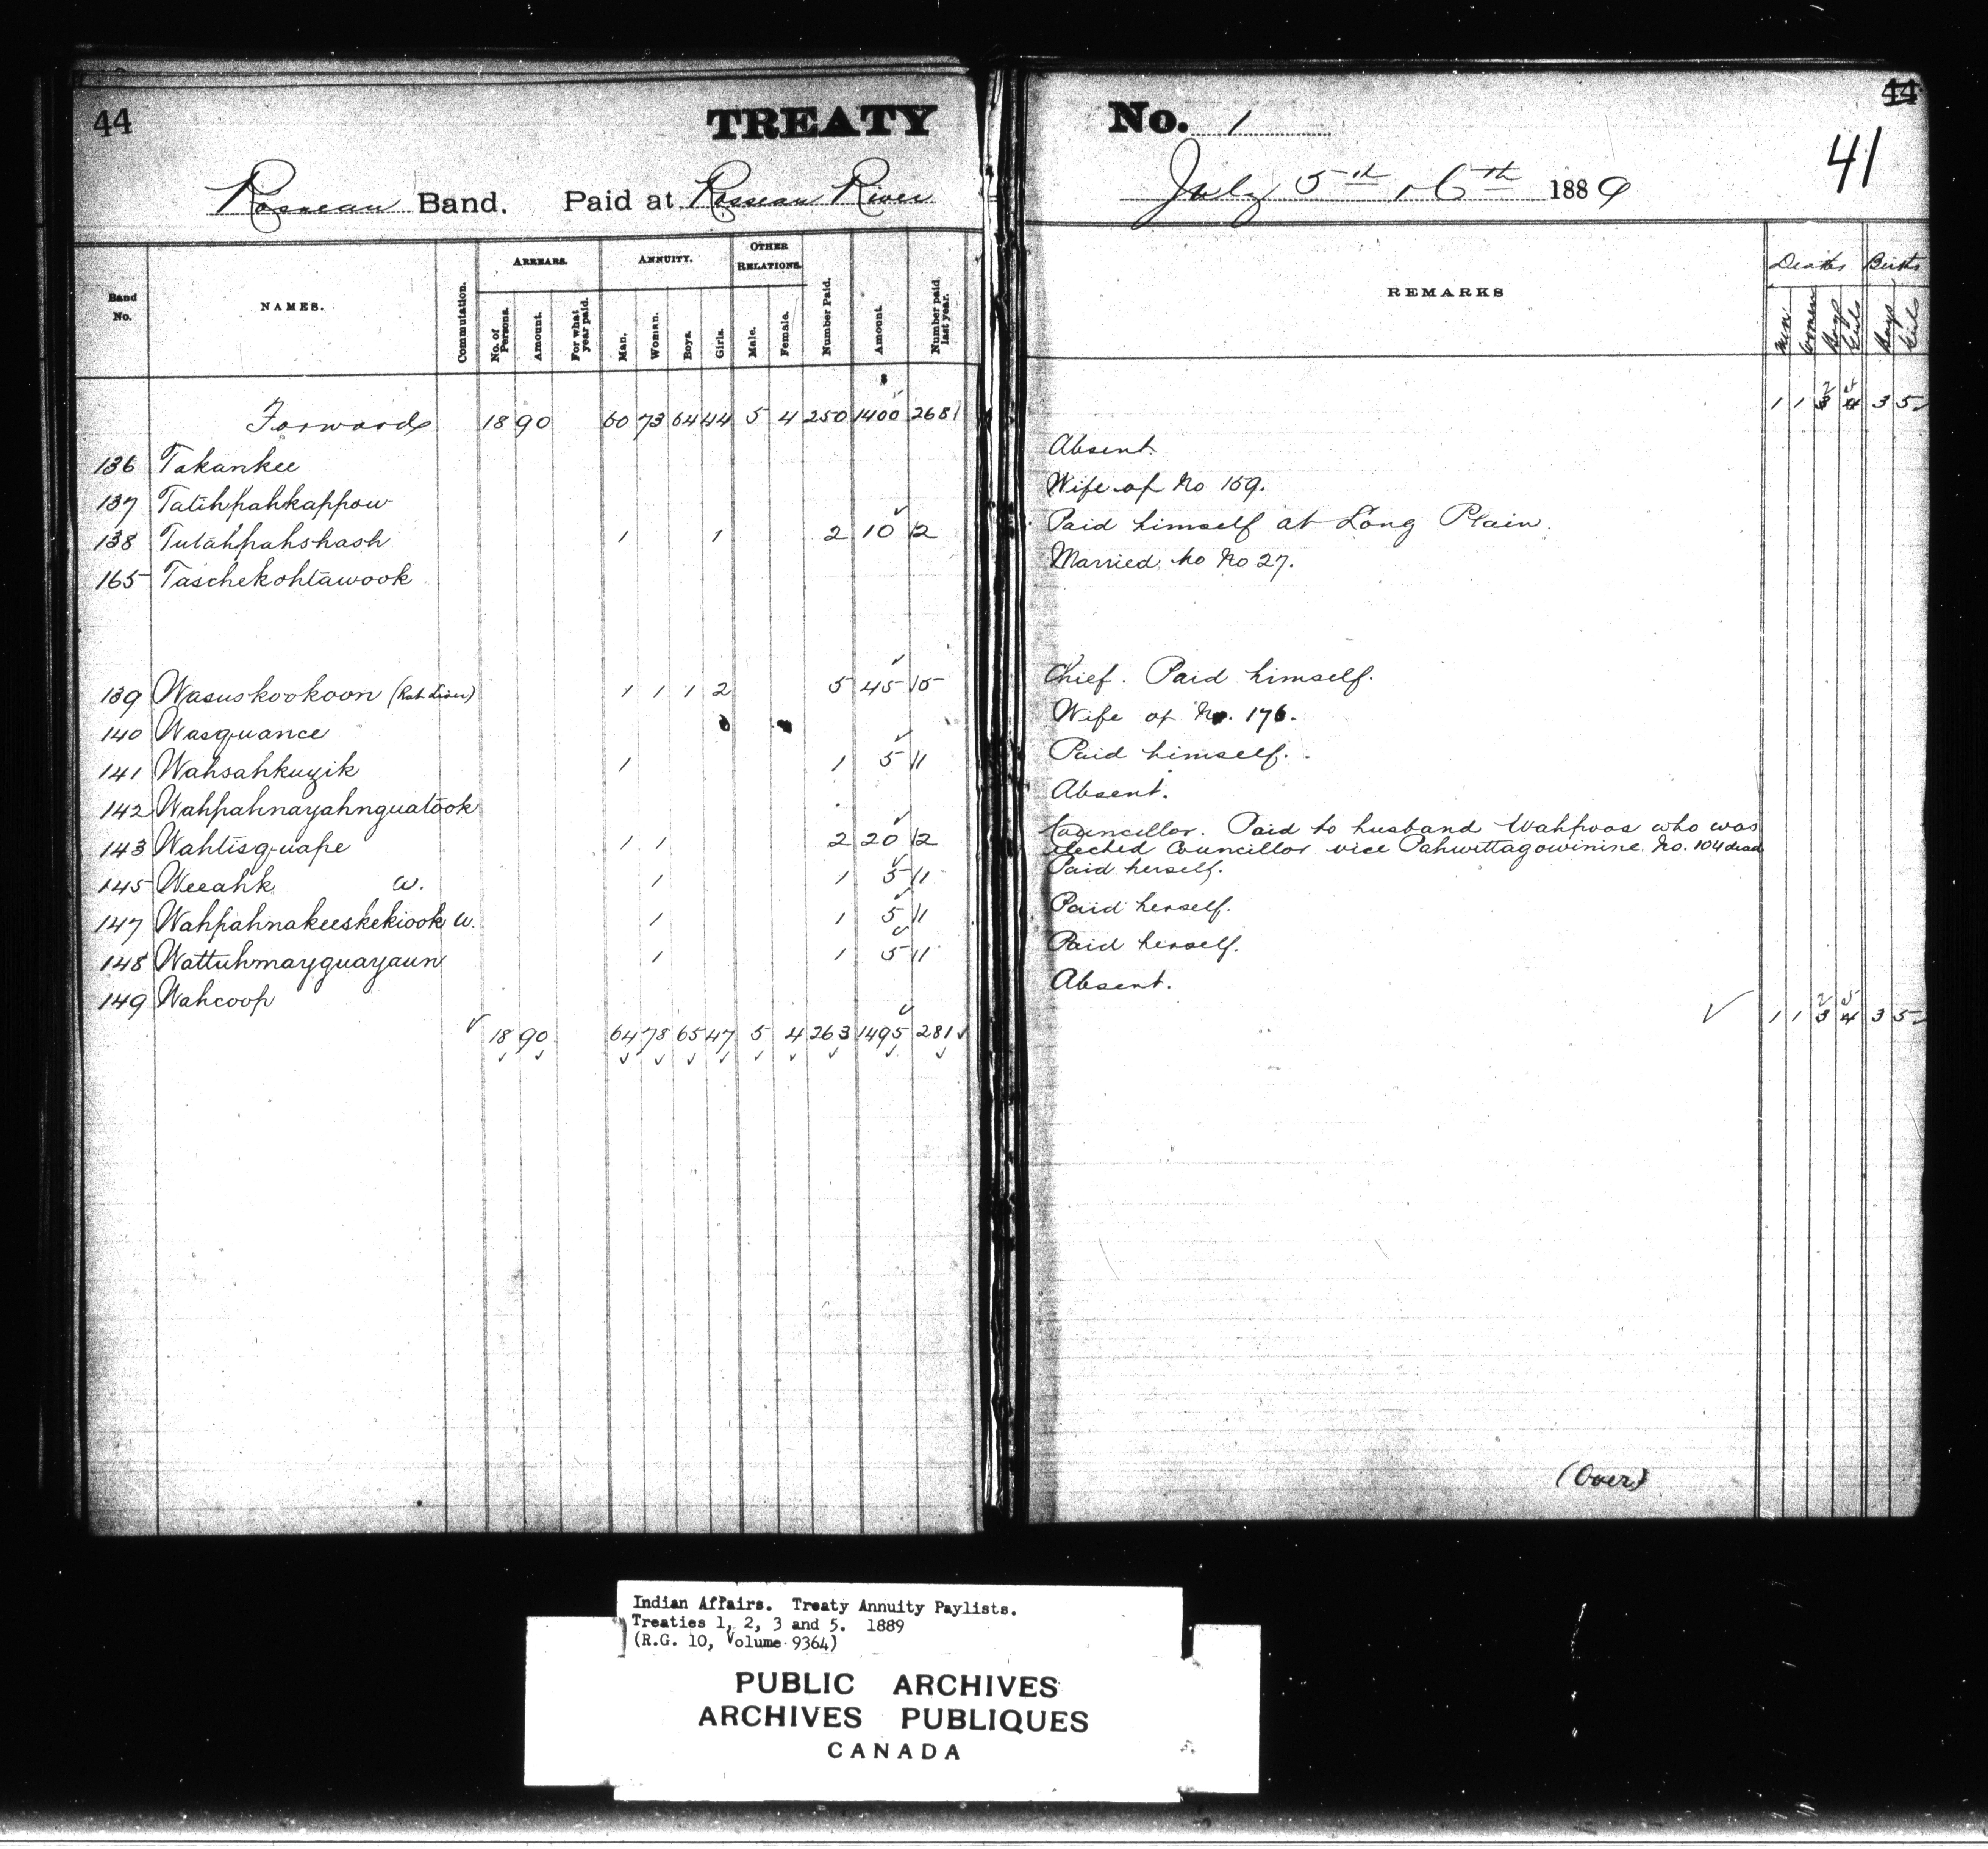 44
TREATY
Rosseau Band. Paid at Rosseau River
Band No. NAMES. Commutation. ARREARS. No. of Persons. Amount. For what year paid. ANNUITY. Man. Woman. Boys. Girls. OTHER RELATIONS. Male. Female. Number Paid. Amount. Number paid last year.
Forward 18 90 60 73 64 44 5 4 250 1400 268
136 Takankee
137 Tatihpahkappow
138 Tutahpahshash 1 1 2 10 2
165 Taschekohtawook
139 Wasuskookoon (Rat Liver) 1 1 1 2 5 45 5
140 Wasquance
141 Wahsahkuzik 1 1 5 1
142 Wahpahnayahnguatook
143 Wahtisquape 1 1 2 20 2
145 Weeahk W. 1 1 5 1
147 Wahpahnakeeskekiook W. 1 1 5 1
148 Wattuhmayguayaun 1 1 5 1
149 Wahcoop
18 90 64 78 65 47 5 4 263 1495 281
No. 1
44
41
July 5th & 6th 1889
REMARKS Deaths Births
Men Women Boys Girls Boys Girls
1 1 2 3 5 4 3 5
Absent.
Wife of No 159.
Paid himself at Long Plain.
Married to No 27.
Chief. Paid himself.
Wife of No. 176.
Paid himself.
Absent.
Councillor. Paid to husband Wahpoos who was
elected Councillor vice Pahwittagowinine No. 104 dead
Paid herself.
Paid herself.
Paid herself.
Absent.
1 1 2 3 5 4 3 5
(Over)
Indian Affairs. Treaty Annuity Paylists.
Treaties 1, 2, 3 and 5. 1889
(R.G. 10, Volume 9364)
PUBLIC ARCHIVES
ARCHIVES PUBLIQUES
CANADA